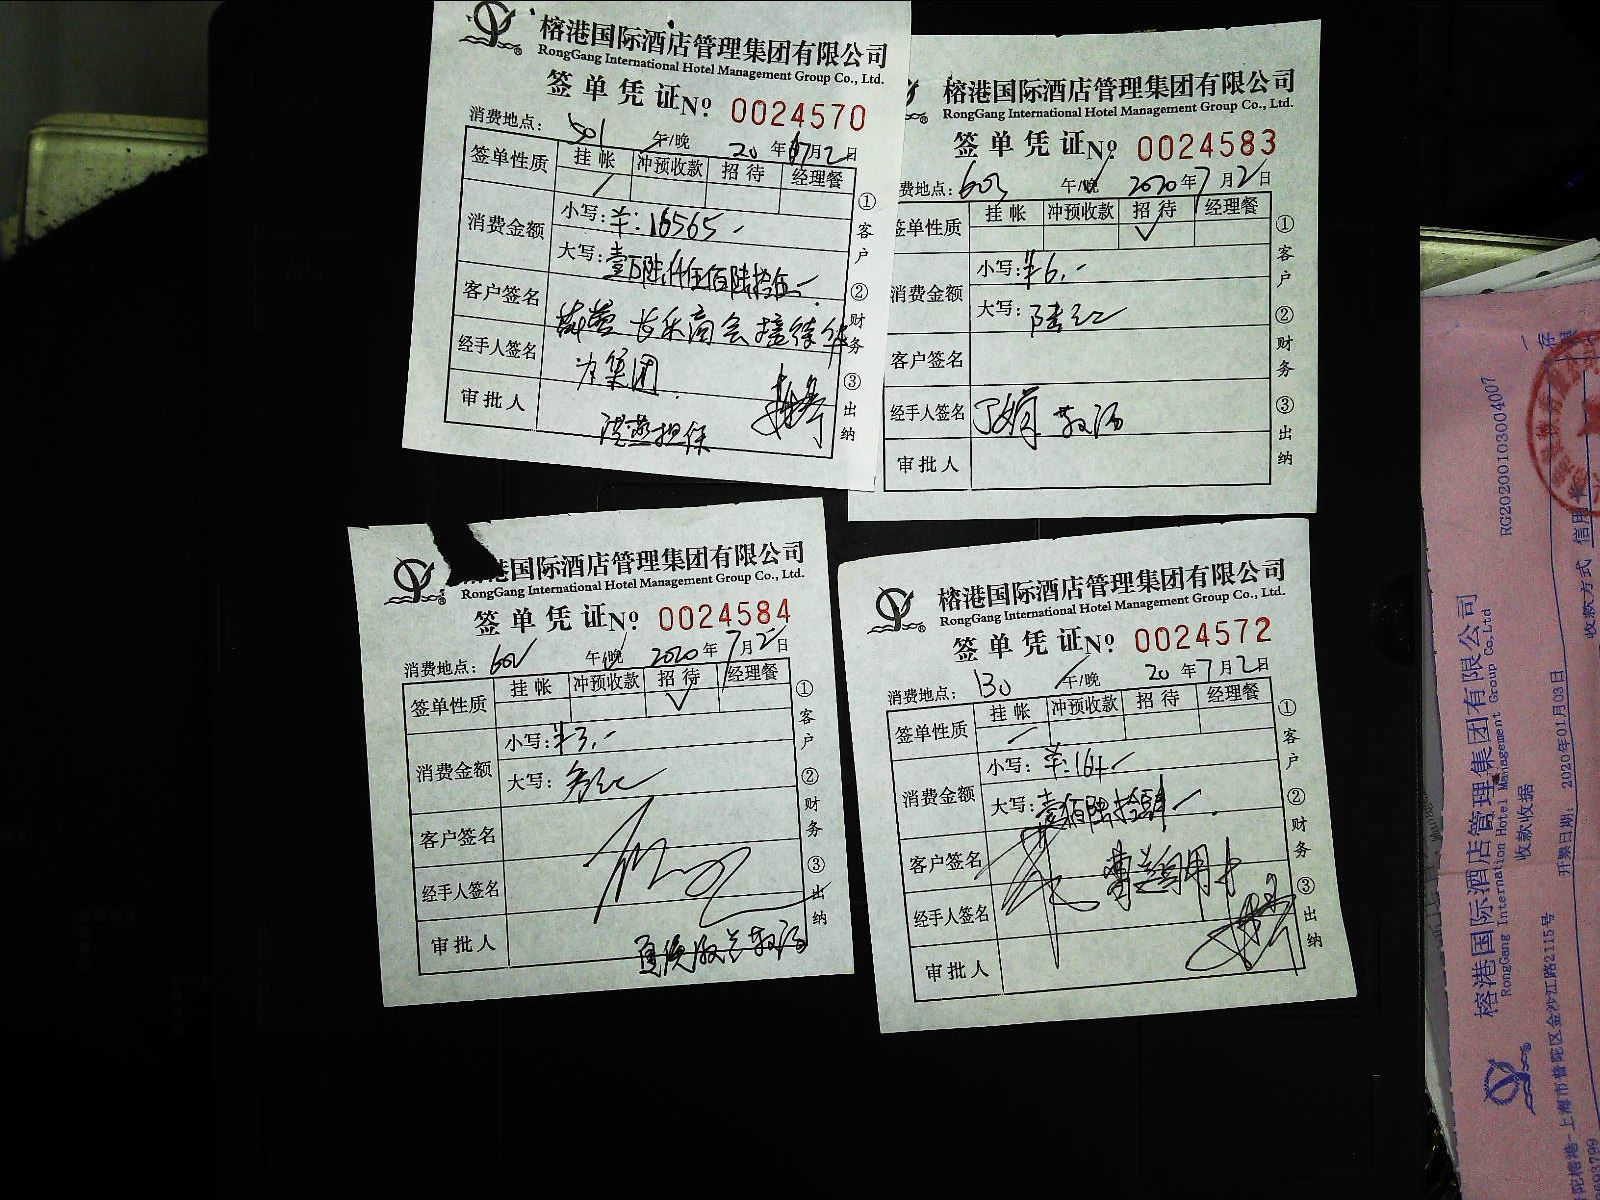 榕港国际酒店管理集团有限公司
RongGang International Hotel Management Group Co., Ltd.
签单凭证 No 0024570
消费地点: 601 午/晚 20 年 7月2日
签单性质 挂帐 冲预收款 招待 经理餐
消费金额 小写: 16565
大写: 壹万陆仟伍佰陆拾伍
客户签名
长乐商会接待华
经手人签名 为集团
审批人 担保
①客户 ②财务 ③出纳
榕港国际酒店管理集团有限公司
RongGang International Hotel Management Group Co., Ltd.
签单凭证 No 0024583
费地点: 603 午/晚 2020年7月2日
签单性质 挂帐 冲预收款 招待 经理餐
消费金额 小写: ¥6.-
大写: 陆元
客户签名
经手人签名 丁娟 敬汤
审批人
①客户 ②财务 ③出纳
港国际酒店管理集团有限公司
RongGang International Hotel Management Group Co., Ltd.
签单凭证 No 0024584
消费地点: 602 午/晚 2020年7月2日
签单性质 挂帐 冲预收款 招待 经理餐
消费金额 小写: ¥3.-
大写: 叁元
客户签名
经手人签名
审批人 敬汤
①客户 ②财务 ③出纳
榕港国际酒店管理集团有限公司
RongGang International Hotel Management Group Co., Ltd.
签单凭证 No 0024572
消费地点: 130 午/晚 20 年7月2日
签单性质 挂帐 冲预收款 招待 经理餐
消费金额 小写: 164
大写: 壹佰陆拾肆
客户签名
经手人签名
审批人
①客户 ②财务 ③出纳
RG20200103004007
收款方式 信用卡
榕港国际酒店管理集团有限公司
RongGang International Hotel Management Group Co.Ltd
收款收据
开票日期: 2020年01月03日
陀榕港-上海市普陀区金沙江路2115号